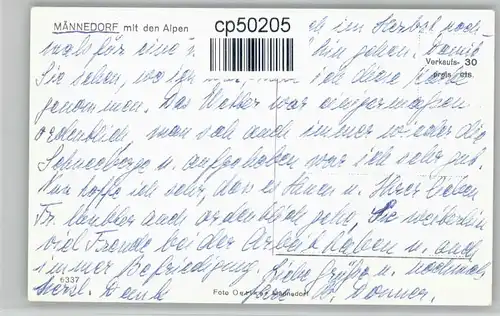 MÄNNEDORF mit den Alpen
cp50205
ich im Herbst noch-
mals für eine
hin gehen. Damit
Verkaufs- 30
preis cts.
Sie sehen, wo ich ich diese Karte
genommen. Das Wetter war einigermassen
ordentlich, man sah auch immer wieder die
Schneeberge u. aufgehoben war ich sehr gut.
Nun hoffe ich sehr, dass es Ihnen u. Ihrer lieben
Fr. auch ordentlich geht, Sie weiterhin
viel Freude bei der Arbeit haben u. auch
immer Befriedigung. Liebe Grüsse u. nochmals
6337
herzl. Dank
Foto Männedorf